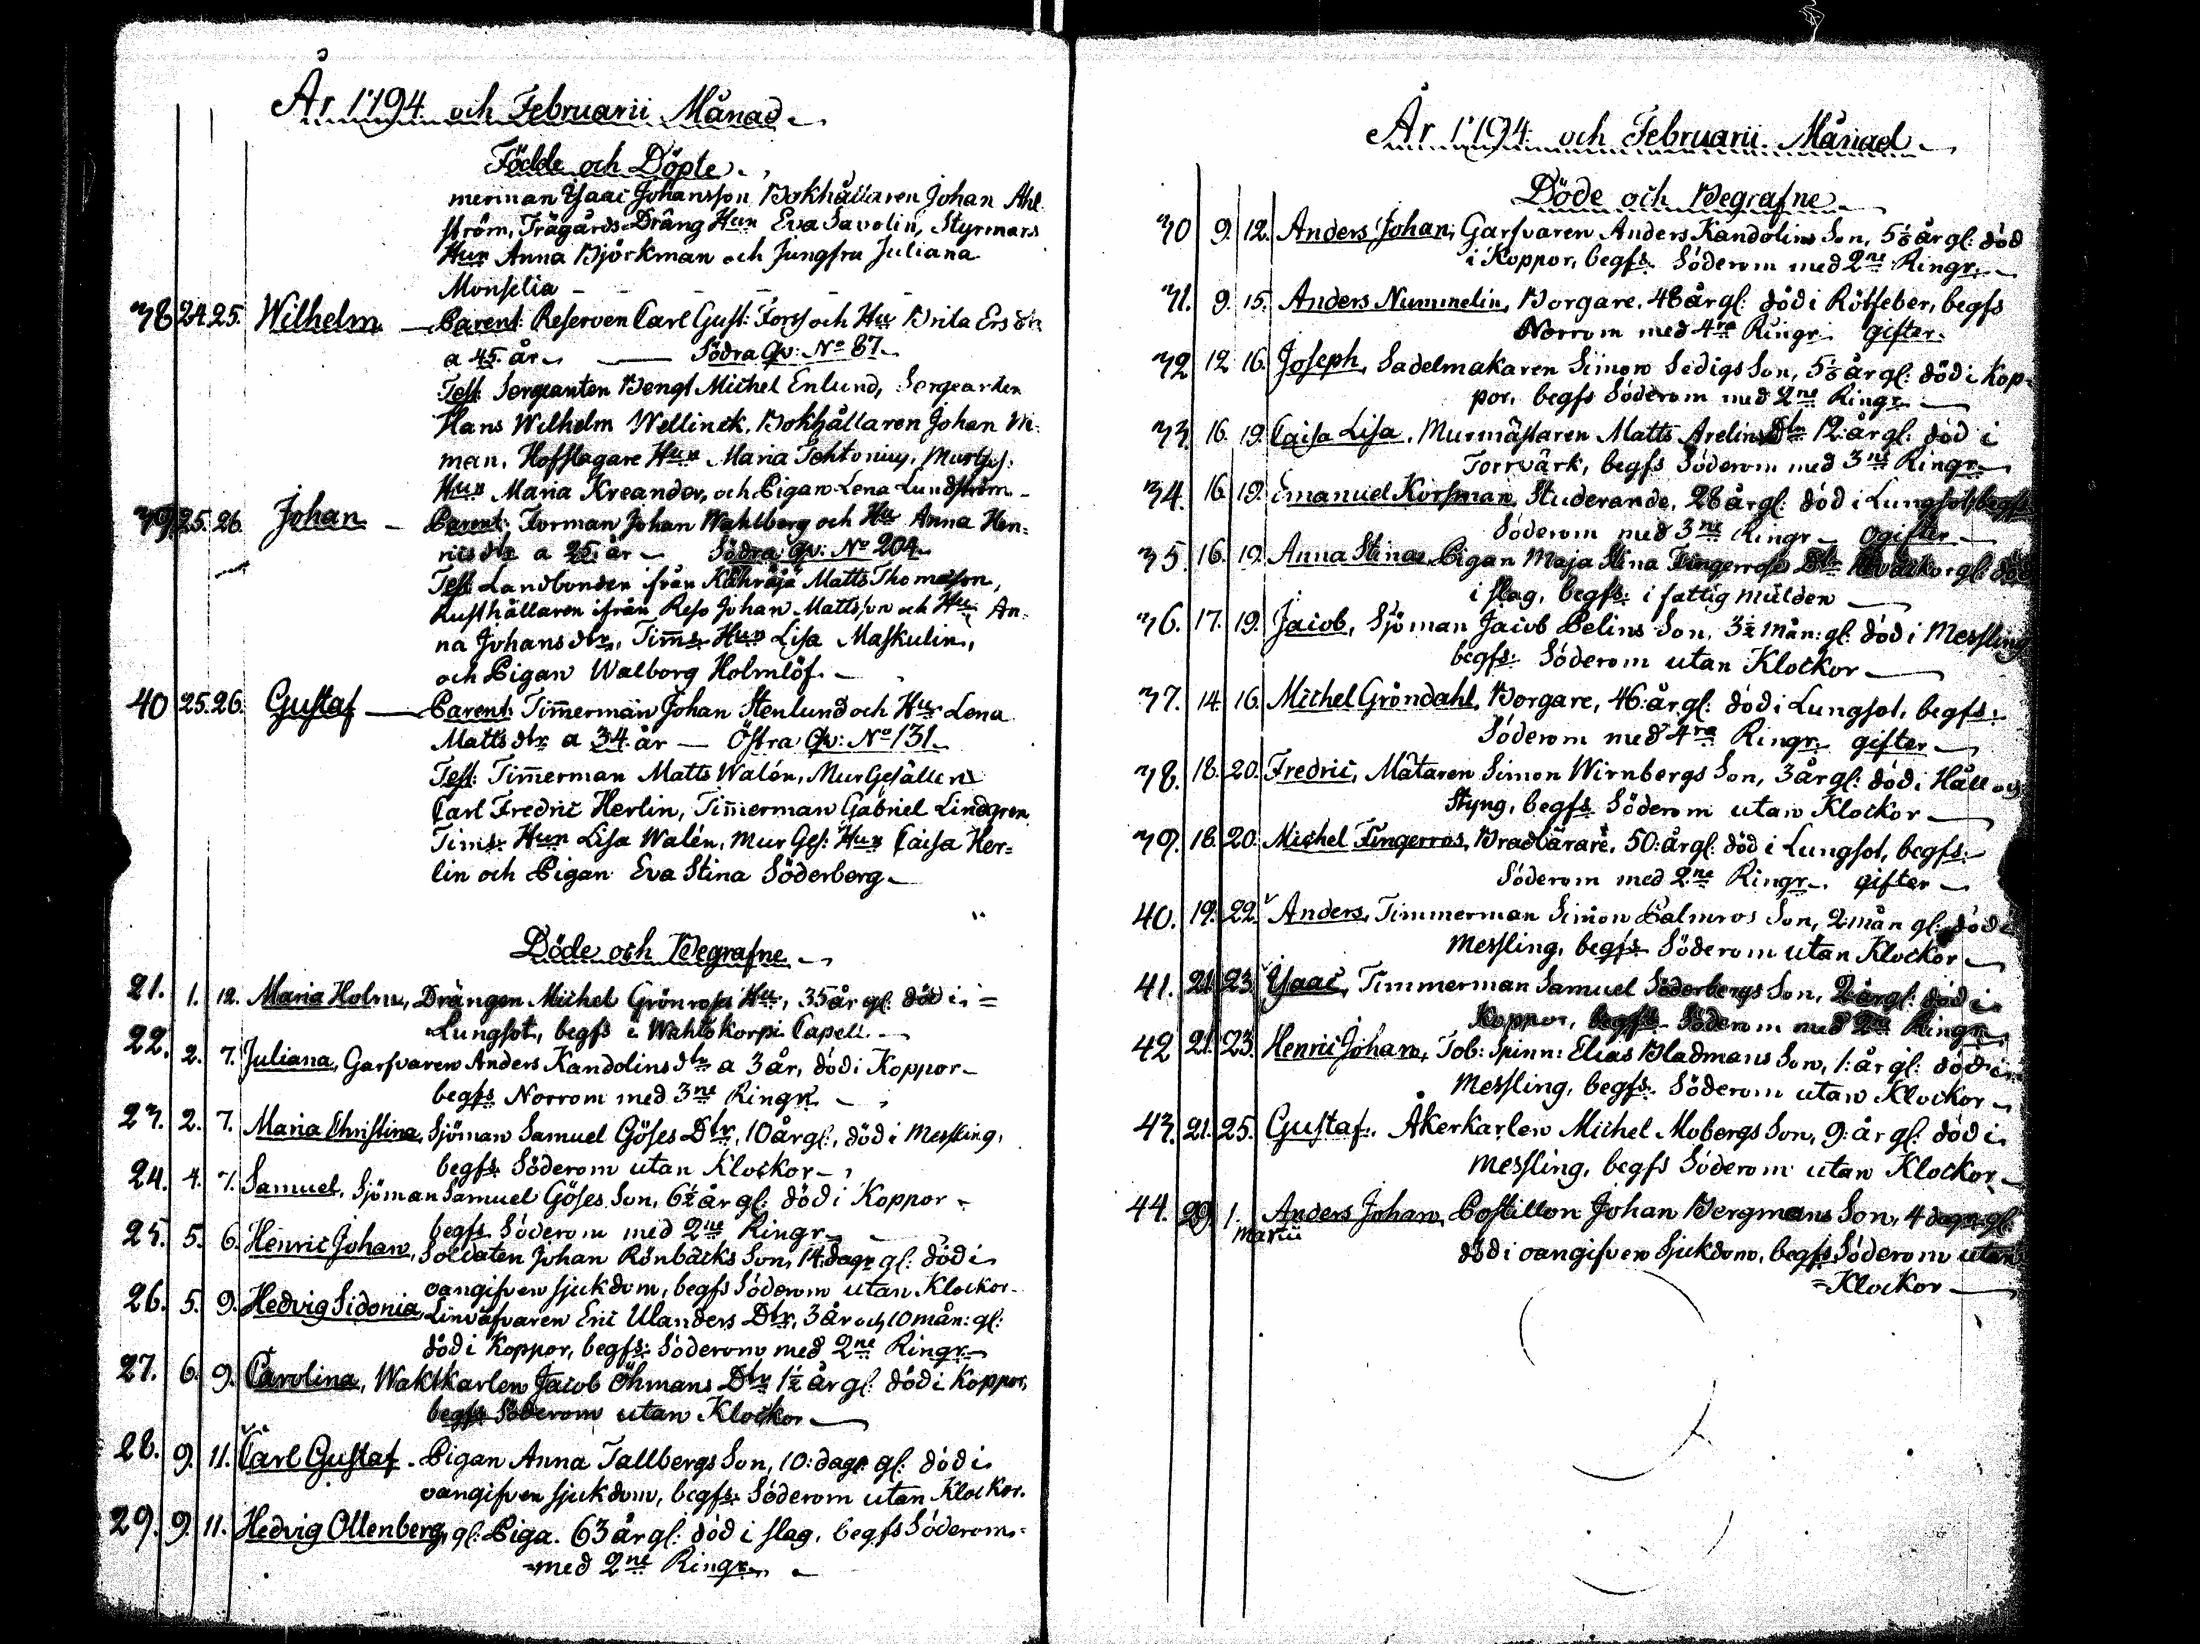 År 1794 och Februarii Månad.
Födde och Döpte.
merman Ysaac Johansson Bokhållaren Johan Ahl-
ström, Trägårds Dräng Hun Eva Savolin, Styrmans
Hun Anna Björkman och Jungfru Juliana
Monselia
38 24. 25. Wilhelm — Parent: Reserven Carl Gust: Forss och Hu Brita Ers dtr
a 45 år. — Södra Qv: No 87.
Test Sergeanten Bengt Michel Enlund, Sergeanten
Hans Wilhelm Wellinck, Bokhållaren Johan Wi-
man, Hofslagare Hun Maria Tohtonius, MurGes:
Hun Maria Kreander, och Pigan Lena Lundström
39. 25. 26. Johan — Parent: Forman Johan Wahlberg och Hu Anna Hen-
rics dtr a 25 år — Södra Qv: No 204.
Test Landbonden ifrån Kähräjä Matts Thomasson,
Rusthållaren ifrån Reso Johan Mattsson och Hu An-
na Johans dtr, Tims. Hun Lisa Maskulin,
och Pigan Walborg Holmlöf.
40 25. 26. Gustaf — Parent: Timerman Johan Stenlund och Hu Lena
Matts dtr a 34 år — Östra Qv: No 131.
Test: Timerman Matts Walén, MurGesällen
Carl Fredric Herlin, Timerman Gabriel Lindgren
Tims: Hun Lisa Walén, Mur Ges: Hun Caisa Her=
lin och Pigan Eva Stina Söderberg.
Döde och Begrafne.
21. 1. 12. Maria Holm, Drängen Michel Grönross Hu, 35 år gl. död i =
Lungsot, begfs i Wahtokorpi Capell.
22. 2. 7. Juliana, Garfvaren Anders Kandolins dtr a 3 år, död i Koppor
begfs Norrom med 3ne Ringr
23. 2. 7. Maria Christina, Sjöman Samuel Göses Dtr, 10 år gl., död i Messling,
begfs Söderom utan Klockor
24. 4. 7. Samuel, Sjöman Samuel Göses Son, 6½ år gl: död i Koppor
begfs Söderom med 2ne Ringr
25. 5. 6. Henric Johan, Soldaten Johan Rönbäcks Son, 14 dagr gl: död i
oangifven sjukdom, begfs Söderom utan Klockor
26. 5. 9. Hedvig Sidonia Linväfvaren Eric Ulanders Dtr, 3 år och 10 mån: gl:
död i Koppor, begfs: Söderom med 2ne Ringr
27. 6. 9. Carolina, Waktkarlen Jacob Öhmans Dtr 1½ år gl: död i Koppor,
begfs Söderom utan Klockor
28. 9. 11. Carl Gustaf. Pigan Anna Tallbergs Son, 10: dagr gl: död i
oangifven sjukdom, begfs: Söderom utan Klockor.
29. 9. 11. Hedvig Ollenberg, gl: Piga. 63 år gl: död i slag, begfs Söderom
med 2ne Ringr
År 1794 och Februarii Månad
Döde och Begrafne
30 9. 12. Anders Johan, Garfvaren Anders Kandolins Son, år gl: död
i Koppor, begfs Söderom med 2ne Ringr.
31. 9. 15. Anders Nummelin, Borgare, 48 år gl: död i Rötfeber, begfs
Norrom med 4ra Ringr gifter.
32 12 16. Joseph, Sadelmakaren Simon Sedigs Son, år gl: död i Kop-
por, begfs Söderom med 2ne Ringr
33. 16. 19. Caisa Lisa, Murmästaren Matts Arelins Dtr 12 år gl: död i
Torrvärk, begfs Söderom med 3ne Ringr
34. 16. 19. Emanuel Korsman, Studerande, 28 år gl: död i Lungsot, begfs
Söderom med 3ne Ringr ogifter
35. 16. 19. Anna Stina, Pigan Maja Stina Fingerroos Dtr veckor gl: död
i slag, begfs: i fattig mulden
36. 17. 19. Jacob, Sjöman Jacob Pelins Son, 3½ mån: gl: död i Messling
begfs: Söderom utan Klockor
37. 14 16. Michel Gröndahl, Borgare, 46: år gl: död i Lungsot, begfs:
Söderom med 4ra Ringr gifter
38. 18. 20. Fredric, Mätaren Simon Wirnbergs Son, 3 år gl: död i Håll och
Styng, begfs Söderom utan Klockor
39. 18. 20. Michel Fingerros, Bradbärare, 50: år gl: död i Lungsot, begfs
Söderom med 2ne Ringr gifter
40. 19. 22. Anders, Timmerman Simon Palmros Son, 2: mån gl: död i
Messling, begfs Söderom utan Klockor
41. 21. 23. Ysaac, Timmerman Samuel Söderbergs Son, 2 år gl: död i
Koppor, begfs Söderom med 2ne Ringr
42 21. 23. Henric Johan, Tob: Spinn: Elias Bladmans Son, 1: år gl: död i
Messling, begfs Söderom utan Klockor
43. 21. 25. Gustaf. Åkerkarlen Michel Mobergs Son, 9: år gl: död i
Messling, begfs Söderom utan Klockor
44. 29. 1. Anders Johan, Postillon Johan Bergmans Son, 4 dagar gl:
Martii
död i oangifven sjukdom, begfs Söderom utan
=Klockor